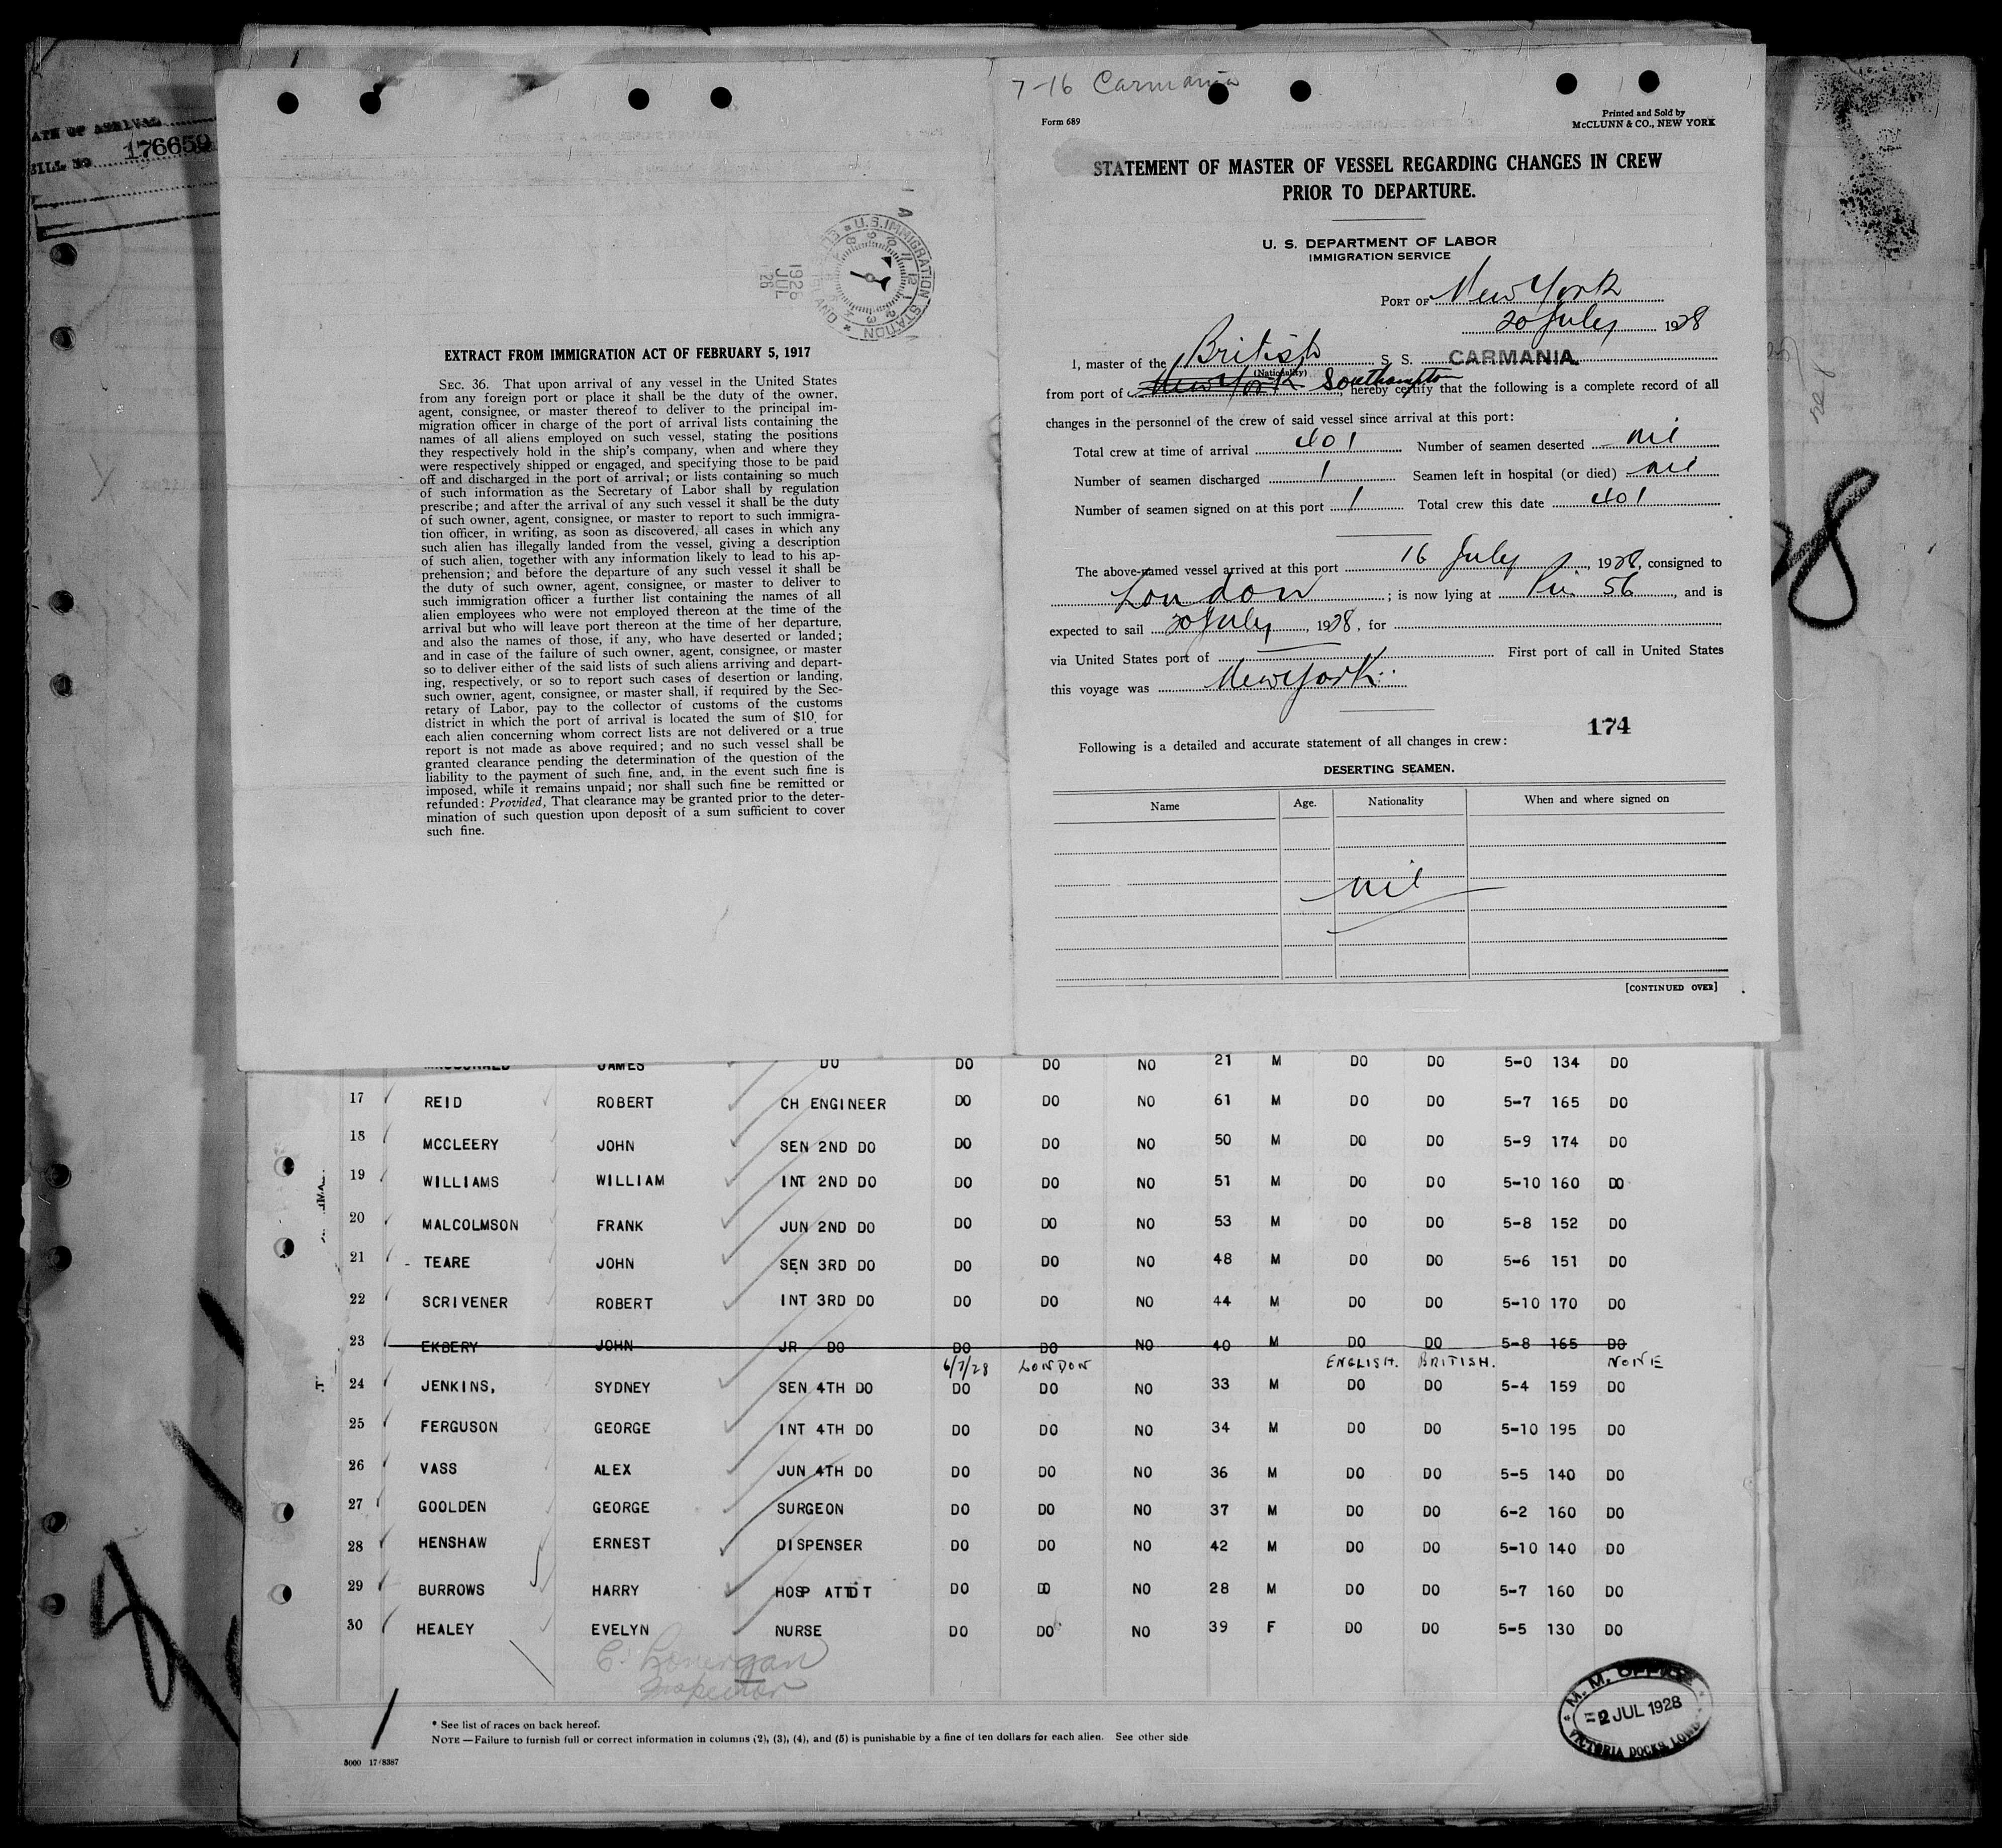 ATE OF ARRIVAL
BILL NO 176659
U.S. IMMIGRATION STATION
1928
JUL
26
EXTRACT FROM IMMIGRATION ACT OF FEBRUARY 5, 1917
SEC. 36. That upon arrival of any vessel in the United States
from any foreign port or place it shall be the duty of the owner,
agent, consignee, or master thereof to deliver to the principal im-
migration officer in charge of the port of arrival lists containing the
names of all aliens employed on such vessel, stating the positions
they respectively hold in the ship's company, when and where they
were respectively shipped or engaged, and specifying those to be paid
off and discharged in the port of arrival; or lists containing so much
of such information as the Secretary of Labor shall by regulation
prescribe; and after the arrival of any such vessel it shall be the duty
of such owner, agent, consignee, or master to report to such immigra-
tion officer, in writing, as soon as discovered, all cases in which any
such alien has illegally landed from the vessel, giving a description
of such alien, together with any information likely to lead to his ap-
prehension; and before the departure of any such vessel it shall be
the duty of such owner, agent, consignee, or master to deliver to
such immigration officer a further list containing the names of all
alien employees who were not employed thereon at the time of the
arrival but who will leave port thereon at the time of her departure,
and also the names of those, if any, who have deserted or landed;
and in case of the failure of such owner, agent, consignee, or master
so to deliver either of the said lists of such aliens arriving and depart-
ing, respectively, or so to report such cases of desertion or landing,
such owner, agent, consignee, or master shall, if required by the Sec-
retary of Labor, pay to the collector of customs of the customs
district in which the port of arrival is located the sum of $10 for
each alien concerning whom correct lists are not delivered or a true
report is not made as above required; and no such vessel shall be
granted clearance pending the determination of the question of the
liability to the payment of such fine, and, in the event such fine is
imposed, while it remains unpaid; nor shall such fine be remitted or
refunded: Provided, That clearance may be granted prior to the deter-
mination of such question upon deposit of a sum sufficient to cover
such fine.
7-16 Carmania
Form 689
Printed and Sold by
McCLUNN & CO., NEW YORK
STATEMENT OF MASTER OF VESSEL REGARDING CHANGES IN CREW
PRIOR TO DEPARTURE.
U. S. DEPARTMENT OF LABOR
IMMIGRATION SERVICE
PORT OF New York
20 July 1928
I, master of the British S. S. CARMANIA
(Nationality)
from port of New York Southampton, hereby certify that the following is a complete record of all
changes in the personnel of the crew of said vessel since arrival at this port:
Total crew at time of arrival 401 Number of seamen deserted nil
Number of seamen discharged 1 Seamen left in hospital (or died) nil
Number of seamen signed on at this port 1 Total crew this date 401
The above-named vessel arrived at this port 16 July, 1928, consigned to
London; is now lying at Pier 56, and is
expected to sail 20 July, 1928, for
via United States port of First port of call in United States
this voyage was New York
174
Following is a detailed and accurate statement of all changes in crew:
DESERTING SEAMEN.
Name Age. Nationality When and where signed on
nil
[CONTINUED OVER]
MACDONALD JAMES DO DO DO NO 21 M DO DO 5-0 134 DO
17 REID ROBERT CH ENGINEER DO DO NO 61 M DO DO 5-7 165 DO
18 MCCLEERY JOHN SEN 2ND DO DO DO NO 50 M DO DO 5-9 174 DO
19 WILLIAMS WILLIAM INT 2ND DO DO DO NO 51 M DO DO 5-10 160 DO
20 MALCOLMSON FRANK JUN 2ND DO DO DO NO 53 M DO DO 5-8 152 DO
21 TEARE JOHN SEN 3RD DO DO DO NO 48 M DO DO 5-6 151 DO
22 SCRIVENER ROBERT INT 3RD DO DO DO NO 44 M DO DO 5-10 170 DO
23 EKBERY JOHN JR DO DO DO NO 40 M DO DO 5-8 165 DO
6/7/28 LONDON ENGLISH. BRITISH. NONE
24 JENKINS, SYDNEY SEN 4TH DO DO DO NO 33 M DO DO 5-4 159 DO
25 FERGUSON GEORGE INT 4TH DO DO DO NO 34 M DO DO 5-10 195 DO
26 VASS ALEX JUN 4TH DO DO DO NO 36 M DO DO 5-5 140 DO
27 GOOLDEN GEORGE SURGEON DO DO NO 37 M DO DO 6-2 160 DO
28 HENSHAW ERNEST DISPENSER DO DO NO 42 M DO DO 5-10 140 DO
29 BURROWS HARRY HOSP ATTDT DO DO NO 28 M DO DO 5-7 160 DO
30 HEALEY EVELYN NURSE DO DO NO 39 F DO DO 5-5 130 DO
C. Lonergan
Inspector
* See list of races on back hereof.
NOTE —Failure to furnish full or correct information in columns (2), (3), (4), and (5) is punishable by a fine of ten dollars for each alien. See other side
5000 17/8387
M. M. OFFICE
2 JUL 1928
VICTORIA DOCKS, LOND